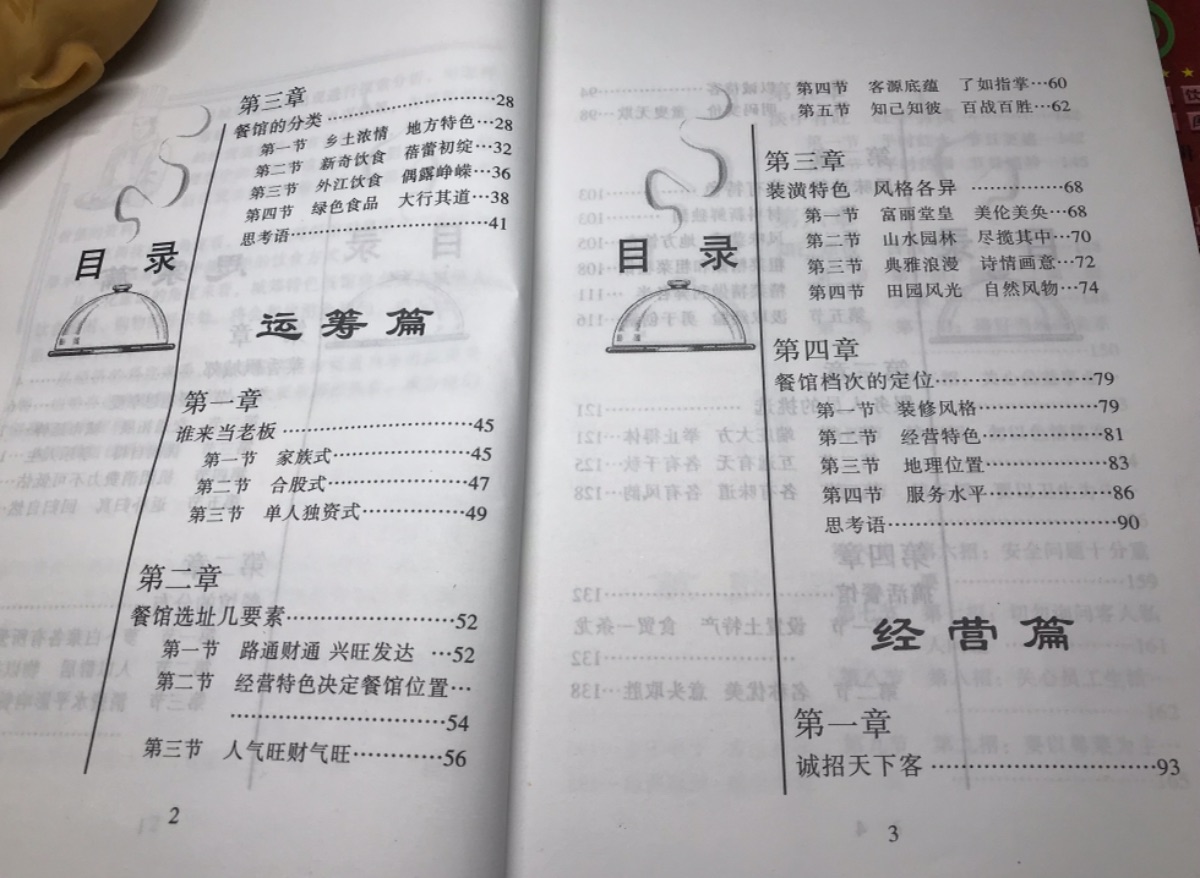 第三章
餐馆的分类……………………28
第一节 乡土浓情 地方特色…28
第二节 新奇饮食 蓓蕾初绽…32
第三节 外江饮食 偶露峥嵘…36
第四节 绿色食品 大行其道…38
思考语……………………………41
目录
运筹篇
第一章
谁来当老板……………………45
第一节 家族式………………45
第二节 合股式………………47
第三节 单人独资式…………49
第二章
餐馆选址几要素………………52
第一节 路通财通 兴旺发达 …52
第二节 经营特色决定餐馆位置…
…………………………54
第三节 人气旺财气旺…………56
2
第四节 客源底蕴 了如指掌…60
第五节 知己知彼 百战百胜…62
目录
第三章
装潢特色 风格各异 …………68
第一节 富丽堂皇 美伦美奂…68
第二节 山水园林 尽揽其中…70
第三节 典雅浪漫 诗情画意…72
第四节 田园风光 自然风物…74
第四章
餐馆档次的定位………………79
第一节 装修风格……………79
第二节 经营特色……………81
第三节 地理位置……………83
第四节 服务水平……………86
思考语…………………………90
经营篇
第一章
诚招天下客……………………93
3